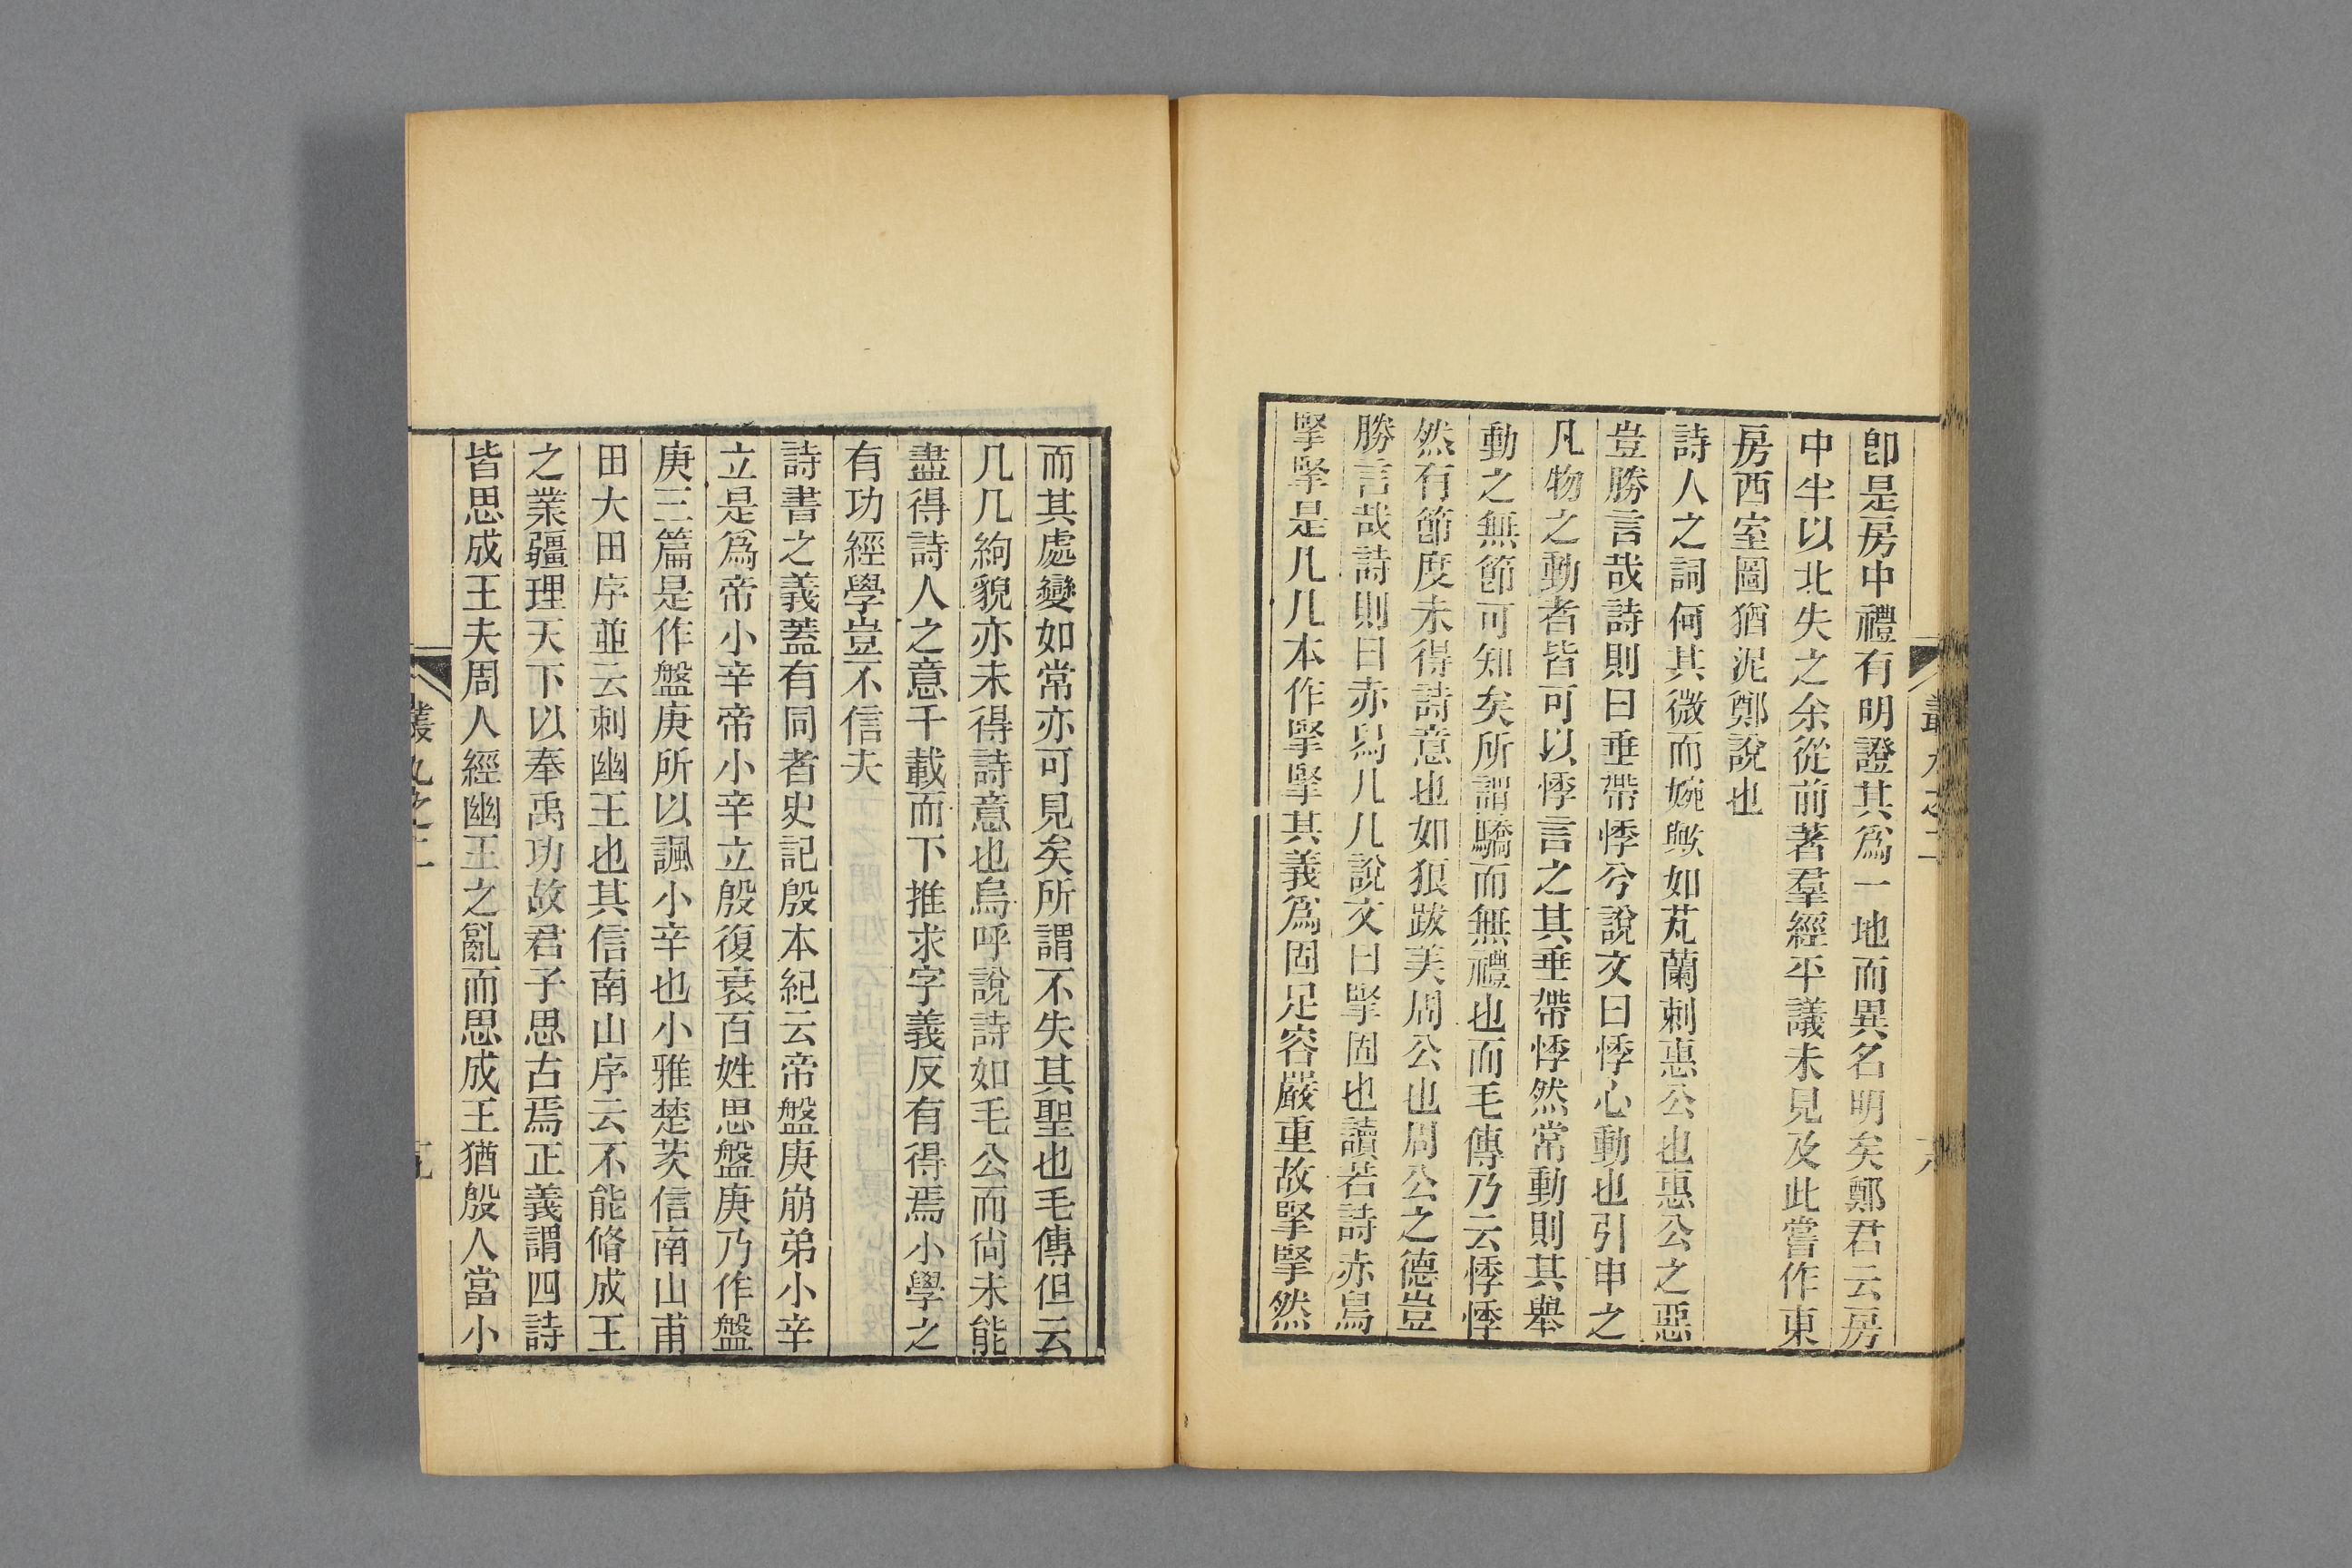 卽是房中禮有明證其爲一地而異名明矣鄭君云房
中半以北失之余從前著羣經平議未見及此嘗作東
房西室圖猶泥鄭說也
詩人之詞何其微而婉歟如芄蘭刺惠公也惠公之惡
豈勝言哉詩則曰垂帶悸兮說文曰悸心動也引申之
凡物之動者皆可以悸言之其垂帶悸然常動則其舉
動之無節可知矣所謂驕而無禮也而毛傳乃云悸悸
然有節度未得詩意也如狼跋美周公也周公之德豈
勝言哉詩則曰赤舄几几說文曰掔固也讀若詩赤舄
掔掔是几几本作掔掔其義爲固足容嚴重故掔掔然
而其處變如常亦可見矣所謂不失其聖也毛傳但云
几几絇貌亦未得詩意也烏呼說詩如毛公而尙未能
盡得詩人之意千載而下推求字義反有得焉小學之
有功經學豈不信夫
詩書之義蓋有同者史記殷本紀云帝盤庚崩弟小辛
立是爲帝小辛帝小辛立殷復衰百姓思盤庚乃作盤
庚三篇是作盤庚所以諷小辛也小雅楚茨信南山甫
田大田序並云刺幽王也其信南山序云不能脩成王
之業疆理天下以奉禹功故君子思古焉正義謂四詩
皆思成王夫周人經幽王之亂而思成王猶殷人當小
叢九之二